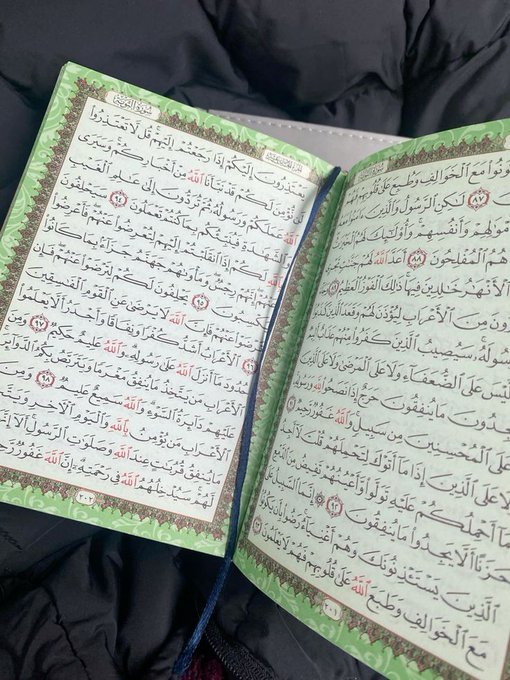 مَعَ الْخَوَالِفِ وَطُبِعَ عَلَىٰ قُلُوبِهِمْ
٨٧ لَٰكِنِ الرَّسُولُ وَالَّذِينَ
وَأَنفُسِهِمْ وَأُولَٰئِكَ لَهُمُ الْخَيْرَاتُ
هُمُ الْمُفْلِحُونَ ٨٨ أَعَدَّ اللَّهُ لَهُمْ جَنَّاتٍ
الْأَنْهَارُ خَالِدِينَ فِيهَا ذَٰلِكَ الْفَوْزُ الْعَظِيمُ
مِنَ الْأَعْرَابِ لِيُؤْذَنَ لَهُمْ وَقَعَدَ الَّذِينَ
سَيُصِيبُ الَّذِينَ كَفَرُوا مِنْهُمْ عَذَابٌ
لَّيْسَ عَلَى الضُّعَفَاءِ وَلَا عَلَى الْمَرْضَىٰ وَلَا عَلَى الَّذِينَ
مَا يُنفِقُونَ حَرَجٌ إِذَا نَصَحُوا لِلَّهِ وَرَسُولِهِ
عَلَى الْمُحْسِنِينَ مِن سَبِيلٍ وَاللَّهُ غَفُورٌ رَّحِيمٌ ٩١
وَلَا عَلَى الَّذِينَ إِذَا مَا أَتَوْكَ لِتَحْمِلَهُمْ قُلْتَ لَا أَجِدُ
مَا أَحْمِلُكُمْ عَلَيْهِ تَوَلَّوا وَّأَعْيُنُهُمْ تَفِيضُ مِنَ
حَزَنًا أَلَّا يَجِدُوا مَا يُنفِقُونَ ٩٢ إِنَّمَا السَّبِيلُ عَلَى
الَّذِينَ يَسْتَأْذِنُونَكَ وَهُمْ أَغْنِيَاءُ رَضُوا بِأَن يَكُونُوا
مَعَ الْخَوَالِفِ وَطَبَعَ اللَّهُ عَلَىٰ قُلُوبِهِمْ فَهُمْ لَا يَعْلَمُونَ ٩٣
٢٠١
سُورَةُ التَّوْبَةِ
يَعْتَذِرُونَ إِلَيْكُمْ إِذَا رَجَعْتُمْ إِلَيْهِمْ قُل لَّا تَعْتَذِرُوا
لَن نُّؤْمِنَ لَكُمْ قَدْ نَبَّأَنَا اللَّهُ مِنْ أَخْبَارِكُمْ وَسَيَرَى
اللَّهُ عَمَلَكُمْ وَرَسُولُهُ ثُمَّ تُرَدُّونَ إِلَىٰ عَالِمِ الْغَيْبِ
وَالشَّهَادَةِ فَيُنَبِّئُكُم بِمَا كُنتُمْ تَعْمَلُونَ ٩٤ سَيَحْلِفُونَ
بِاللَّهِ لَكُمْ إِذَا انقَلَبْتُمْ إِلَيْهِمْ لِتُعْرِضُوا عَنْهُمْ فَأَعْرِضُوا
عَنْهُمْ إِنَّهُمْ رِجْسٌ وَمَأْوَاهُمْ جَهَنَّمُ جَزَاءً بِمَا كَانُوا
يَكْسِبُونَ ٩٥ يَحْلِفُونَ لَكُمْ لِتَرْضَوْا عَنْهُمْ فَإِن
تَرْضَوْا عَنْهُمْ فَإِنَّ اللَّهَ لَا يَرْضَىٰ عَنِ الْقَوْمِ الْفَاسِقِينَ
٩٦ الْأَعْرَابُ أَشَدُّ كُفْرًا وَنِفَاقًا وَأَجْدَرُ أَلَّا يَعْلَمُوا
حُدُودَ مَا أَنزَلَ اللَّهُ عَلَىٰ رَسُولِهِ وَاللَّهُ عَلِيمٌ حَكِيمٌ ٩٧ وَمِنَ
الْأَعْرَابِ مَن يَتَّخِذُ مَا يُنفِقُ مَغْرَمًا وَيَتَرَبَّصُ بِكُمُ الدَّوَائِرَ
عَلَيْهِمْ دَائِرَةُ السَّوْءِ وَاللَّهُ سَمِيعٌ عَلِيمٌ ٩٨ وَمِنَ
الْأَعْرَابِ مَن يُؤْمِنُ بِاللَّهِ وَالْيَوْمِ الْآخِرِ وَيَتَّخِذُ
مَا يُنفِقُ قُرُبَاتٍ عِندَ اللَّهِ وَصَلَوَاتِ الرَّسُولِ أَلَا إِنَّهَا
قُرْبَةٌ لَّهُمْ سَيُدْخِلُهُمُ اللَّهُ فِي رَحْمَتِهِ إِنَّ اللَّهَ غَفُورٌ
٢٠٢